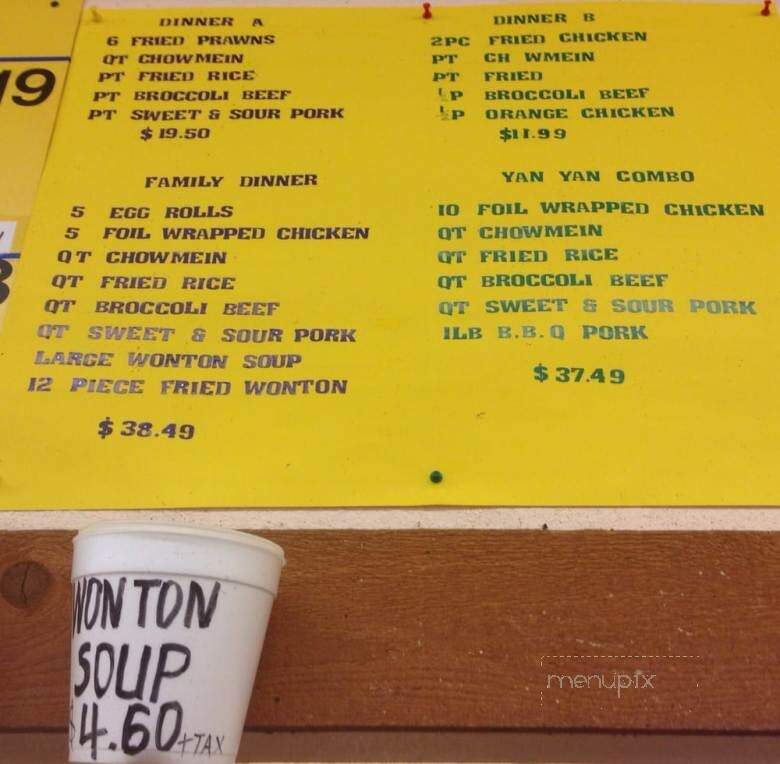 19
DINNER A
6 FRIED PRAWNS
QT CHOWMEIN
PT FRIED RICE
PT BROCCOLI BEEF
PT SWEET & SOUR PORK
$ 19.50
DINNER B
2PC FRIED CHICKEN
PT CH WMEIN
PT FRIED
½P BROCCOLI BEEF
½P ORANGE CHICKEN
$11.99
FAMILY DINNER
5 EGG ROLLS
5 FOIL WRAPPED CHICKEN
QT CHOWMEIN
QT FRIED RICE
QT BROCCOLI BEEF
QT SWEET & SOUR PORK
LARGE WONTON SOUP
12 PIECE FRIED WONTON
$ 38.49
YAN YAN COMBO
10 FOIL WRAPPED CHICKEN
QT CHOWMEIN
QT FRIED RICE
QT BROCCOLI BEEF
QT SWEET & SOUR PORK
1LB B.B.Q PORK
$ 37.49
WONTON
SOUP
$4.60 +TAX
menupix